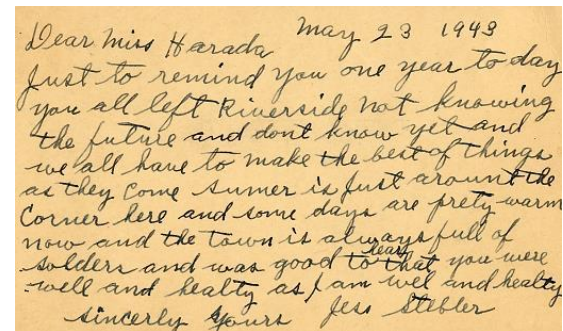 May 23 1943
Dear Miss Harada
Just to remind you one year to day
you all left Riverside not knowing
the future and dont know yet and
we all have to make the best of things
as they come sumer is just arount the
Corner here and some days are prety warm
now and the town is always full of
solders and was good to hear that you were
well and healty as I am wel and healty
sincerly yours Jess Stebler